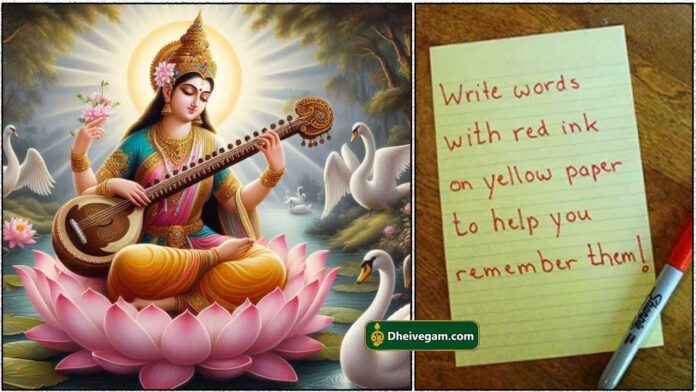 Write words
with red ink
on yellow paper
to help you
remember them!
Sharpie
Dheivegam.com